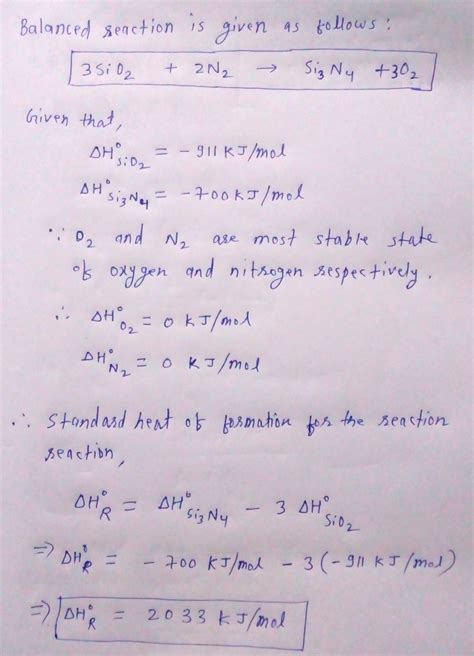 Balanced reaction is given as follows:
3SiO₂ + 2N₂ → Si₃N₄ + 3O₂
Given that,
ΔH°SiO₂ = - 911 KJ/mol
ΔH°Si₃N₄ = - 700 KJ/mol
∵ O₂ and N₂ are most stable state
of oxygen and nitrogen respectively.
∴ ΔH°O₂ = 0 KJ/mol
ΔH°N₂ = 0 KJ/mol
∴ Standard heat of formation for the reaction
reaction,
ΔH°R = ΔH°Si₃N₄ - 3 ΔH°SiO₂
⇒ ΔH°R = - 700 KJ/mol - 3(-911 KJ/mol)
⇒ ΔH°R = 2033 KJ/mol